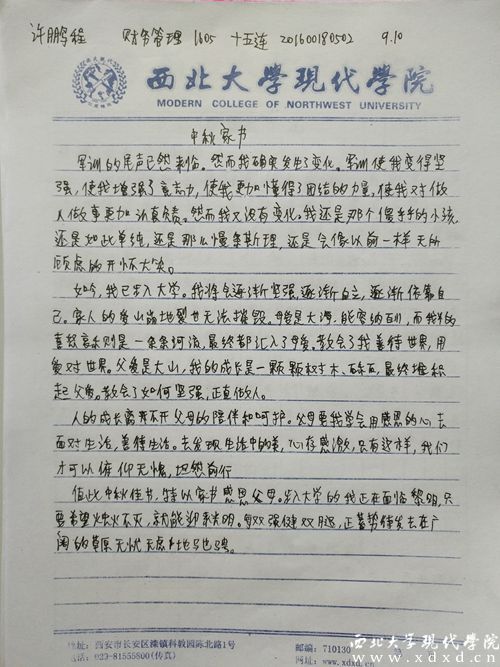 许鹏程 财务管理 1605 十五连 201600180502 9.10
西北大学現代學院
MODERN COLLEGE OF NORTHWEST UNIVERSITY
中秋家书
军训的尾声已然来临。然而我确实发生了变化。军训使我变得坚
强,使我增强了意志力,使我更加懂得了团结的力量,使我对做
人做事更加认真负责。然而我又没有变化。我还是那个傻乎乎的小孩,
还是如此单纯,还是那么慢条斯理,还是会像以前一样无所
顾虑的开怀大笑。
如今,我已步入大学。我将会逐渐坚强,逐渐自立,逐渐依靠自
己。家人的爱山崩地裂也无法摧毁。母爱是大海,能容纳百川,而我的
喜怒哀乐则是一条条河流,最终都汇入了母爱。教会了我善待世界,用
爱对世界。父爱是大山,我的成长是一颗颗树木、砾石,最终堆积
起父爱。教会了如何坚强,正直做人。
人的成长离不开父母的陪伴和呵护。父母要我学会用感恩的心去
面对生活,善待生活。去发现生活中的美,心存感激,只有这样,我们
才可以俯仰无愧,坦然前行
值此中秋佳节,特以家书感恩父母。步入大学的我正在面临黎明,只
要希望烛火不灭,就能迎来光明。每双强健双腿,正蓄势待发去在广
阔的草原无忧无虑地
地址:西安市长安区滦镇科教园陈北路1号
电话:029-81555500(传真)
邮编:710130
网址:www.xdxd.
西北大学現代学院
www.xdxd.cn